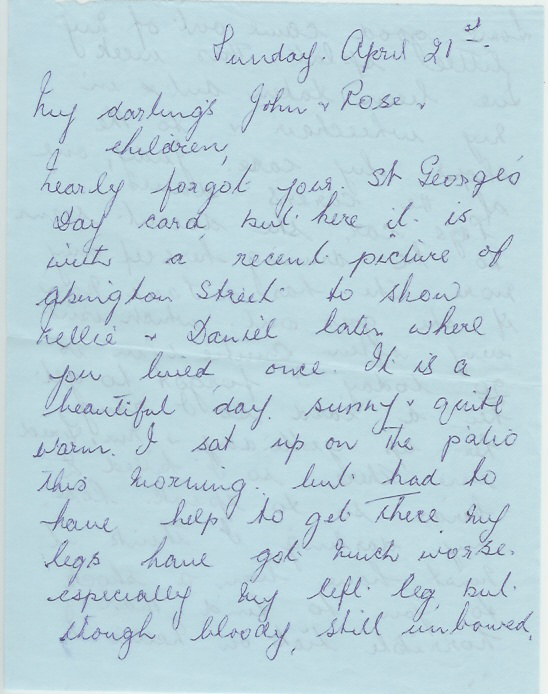 Sunday. April 21st.
My darlings John & Rose &
children,
Nearly forgot your St George's
Day card but here it is
with a recent picture of
Abington Street to show
Nellie & Daniel later where
you lived once. It is a
beautiful day. sunny & quite
warm. I sat up on the patio
this morning. but had to
have help to get there my
legs have got much worse.
especially my left leg but
though bloody, still unbowed,